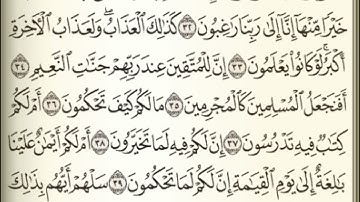 خَيْرًا مِّنْهَا إِنَّا إِلَىٰ رَبِّنَا رَاغِبُونَ ٣٢ كَذَٰلِكَ الْعَذَابُ ۖ وَلَعَذَابُ الْآخِرَةِ
أَكْبَرُ ۚ لَوْ كَانُوا يَعْلَمُونَ ٣٣ إِنَّ لِلْمُتَّقِينَ عِندَ رَبِّهِمْ جَنَّاتِ النَّعِيمِ ٣٤
أَفَنَجْعَلُ الْمُسْلِمِينَ كَالْمُجْرِمِينَ ٣٥ مَا لَكُمْ كَيْفَ تَحْكُمُونَ ٣٦ أَمْ لَكُمْ
كِتَابٌ فِيهِ تَدْرُسُونَ ٣٧ إِنَّ لَكُمْ فِيهِ لَمَا تَخَيَّرُونَ ٣٨ أَمْ لَكُمْ أَيْمَانٌ عَلَيْنَا
بَالِغَةٌ إِلَىٰ يَوْمِ الْقِيَامَةِ ۙ إِنَّ لَكُمْ لَمَا تَحْكُمُونَ ٣٩ سَلْهُمْ أَيُّهُم بِذَٰلِكَ